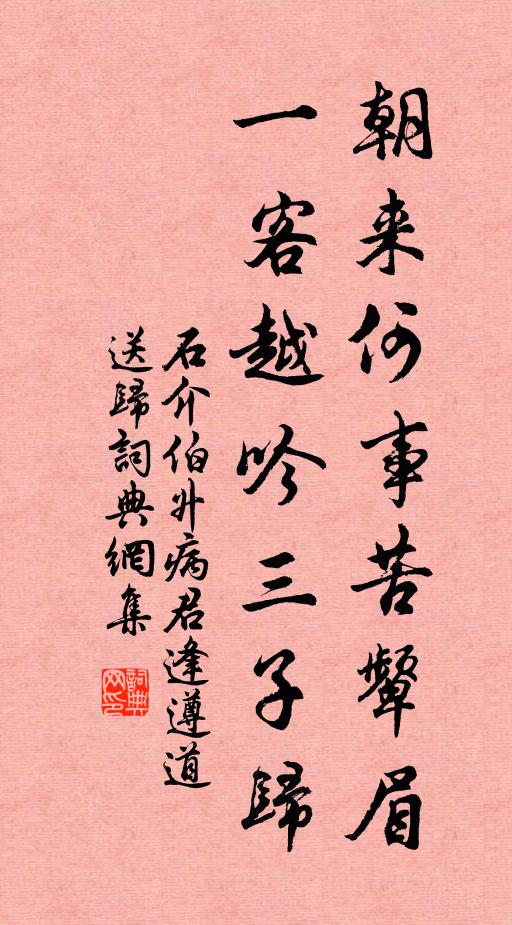 朝来何事苦颦眉
一客越吟三子歸
石介伯升病君逢遵道
送歸詞典網集
詞典网印